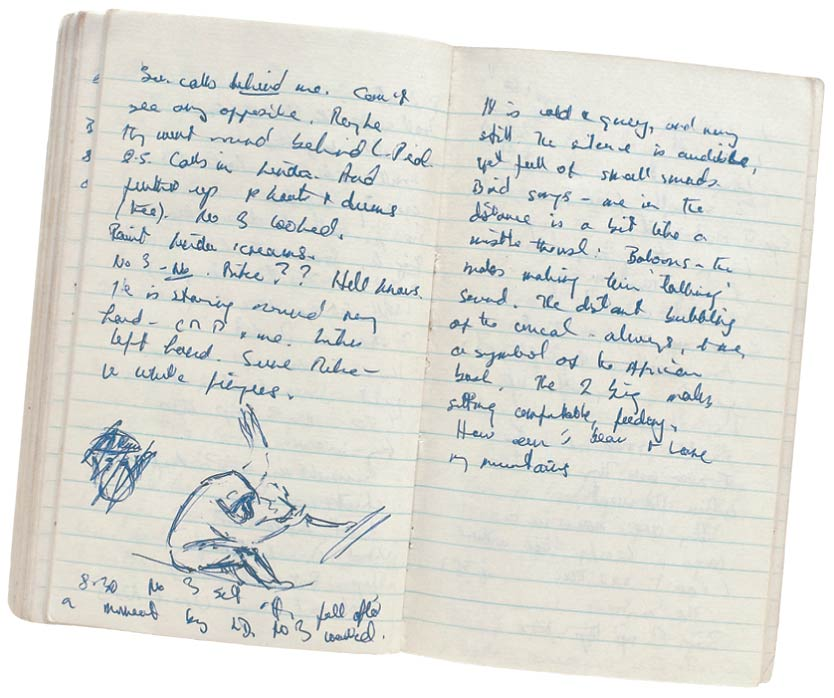 calls behind me. Can't
see any opposite. Maybe
they went round behind
calls in Linda. And
further up P hoots & drums
(tree). No 3 looked.
Faint Linda screams.
No 3 – No. Mike?? Hell knows.
He is staring round my
hand – & me. In his
left hand. Sure Mike –
white fingers.
8.30 No 3 set off, foll. after
a moment by No 3
It is cold & grey, and very
still. The silence is audible,
yet full of small sounds.
Bird songs – one in the
distance is a bit like a
mistle thrush: Baboons – the
males making their 'talking'
sound. The distant bubbling
of the coucal – always, to me,
a symbol of the African
bush. The 2 big males,
sitting comfortable, feeding.
How can I bear to leave
my mountains